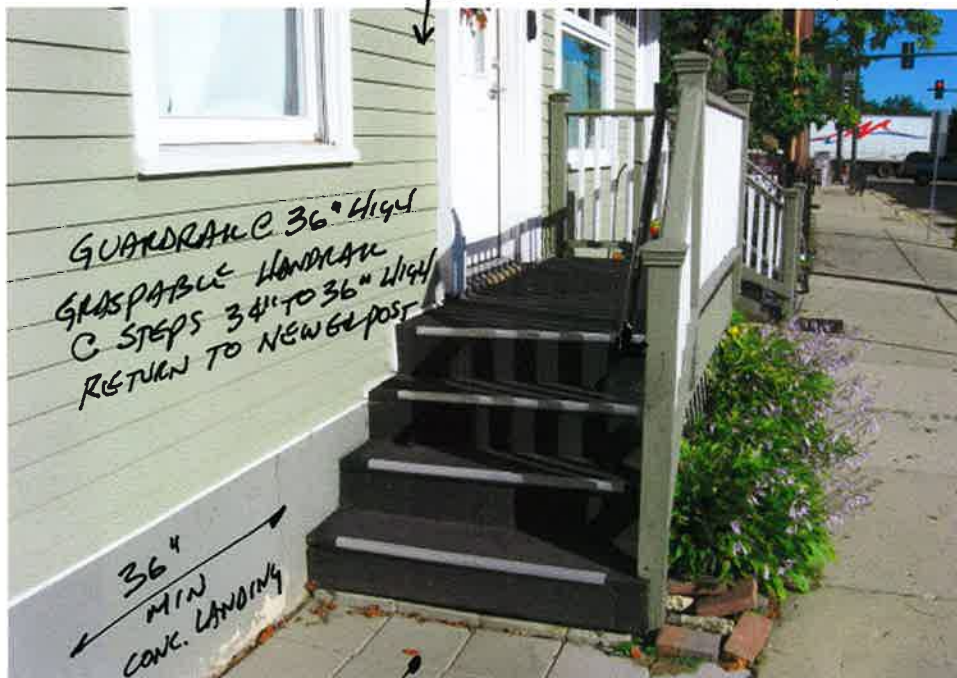 GUARDRAIL @ 36" HIGH
GRASPABLE HANDRAIL
@ STEPS 34" TO 36" HIGH
RETURN TO NEWELPOST
36"
MIN
CONC. LANDING